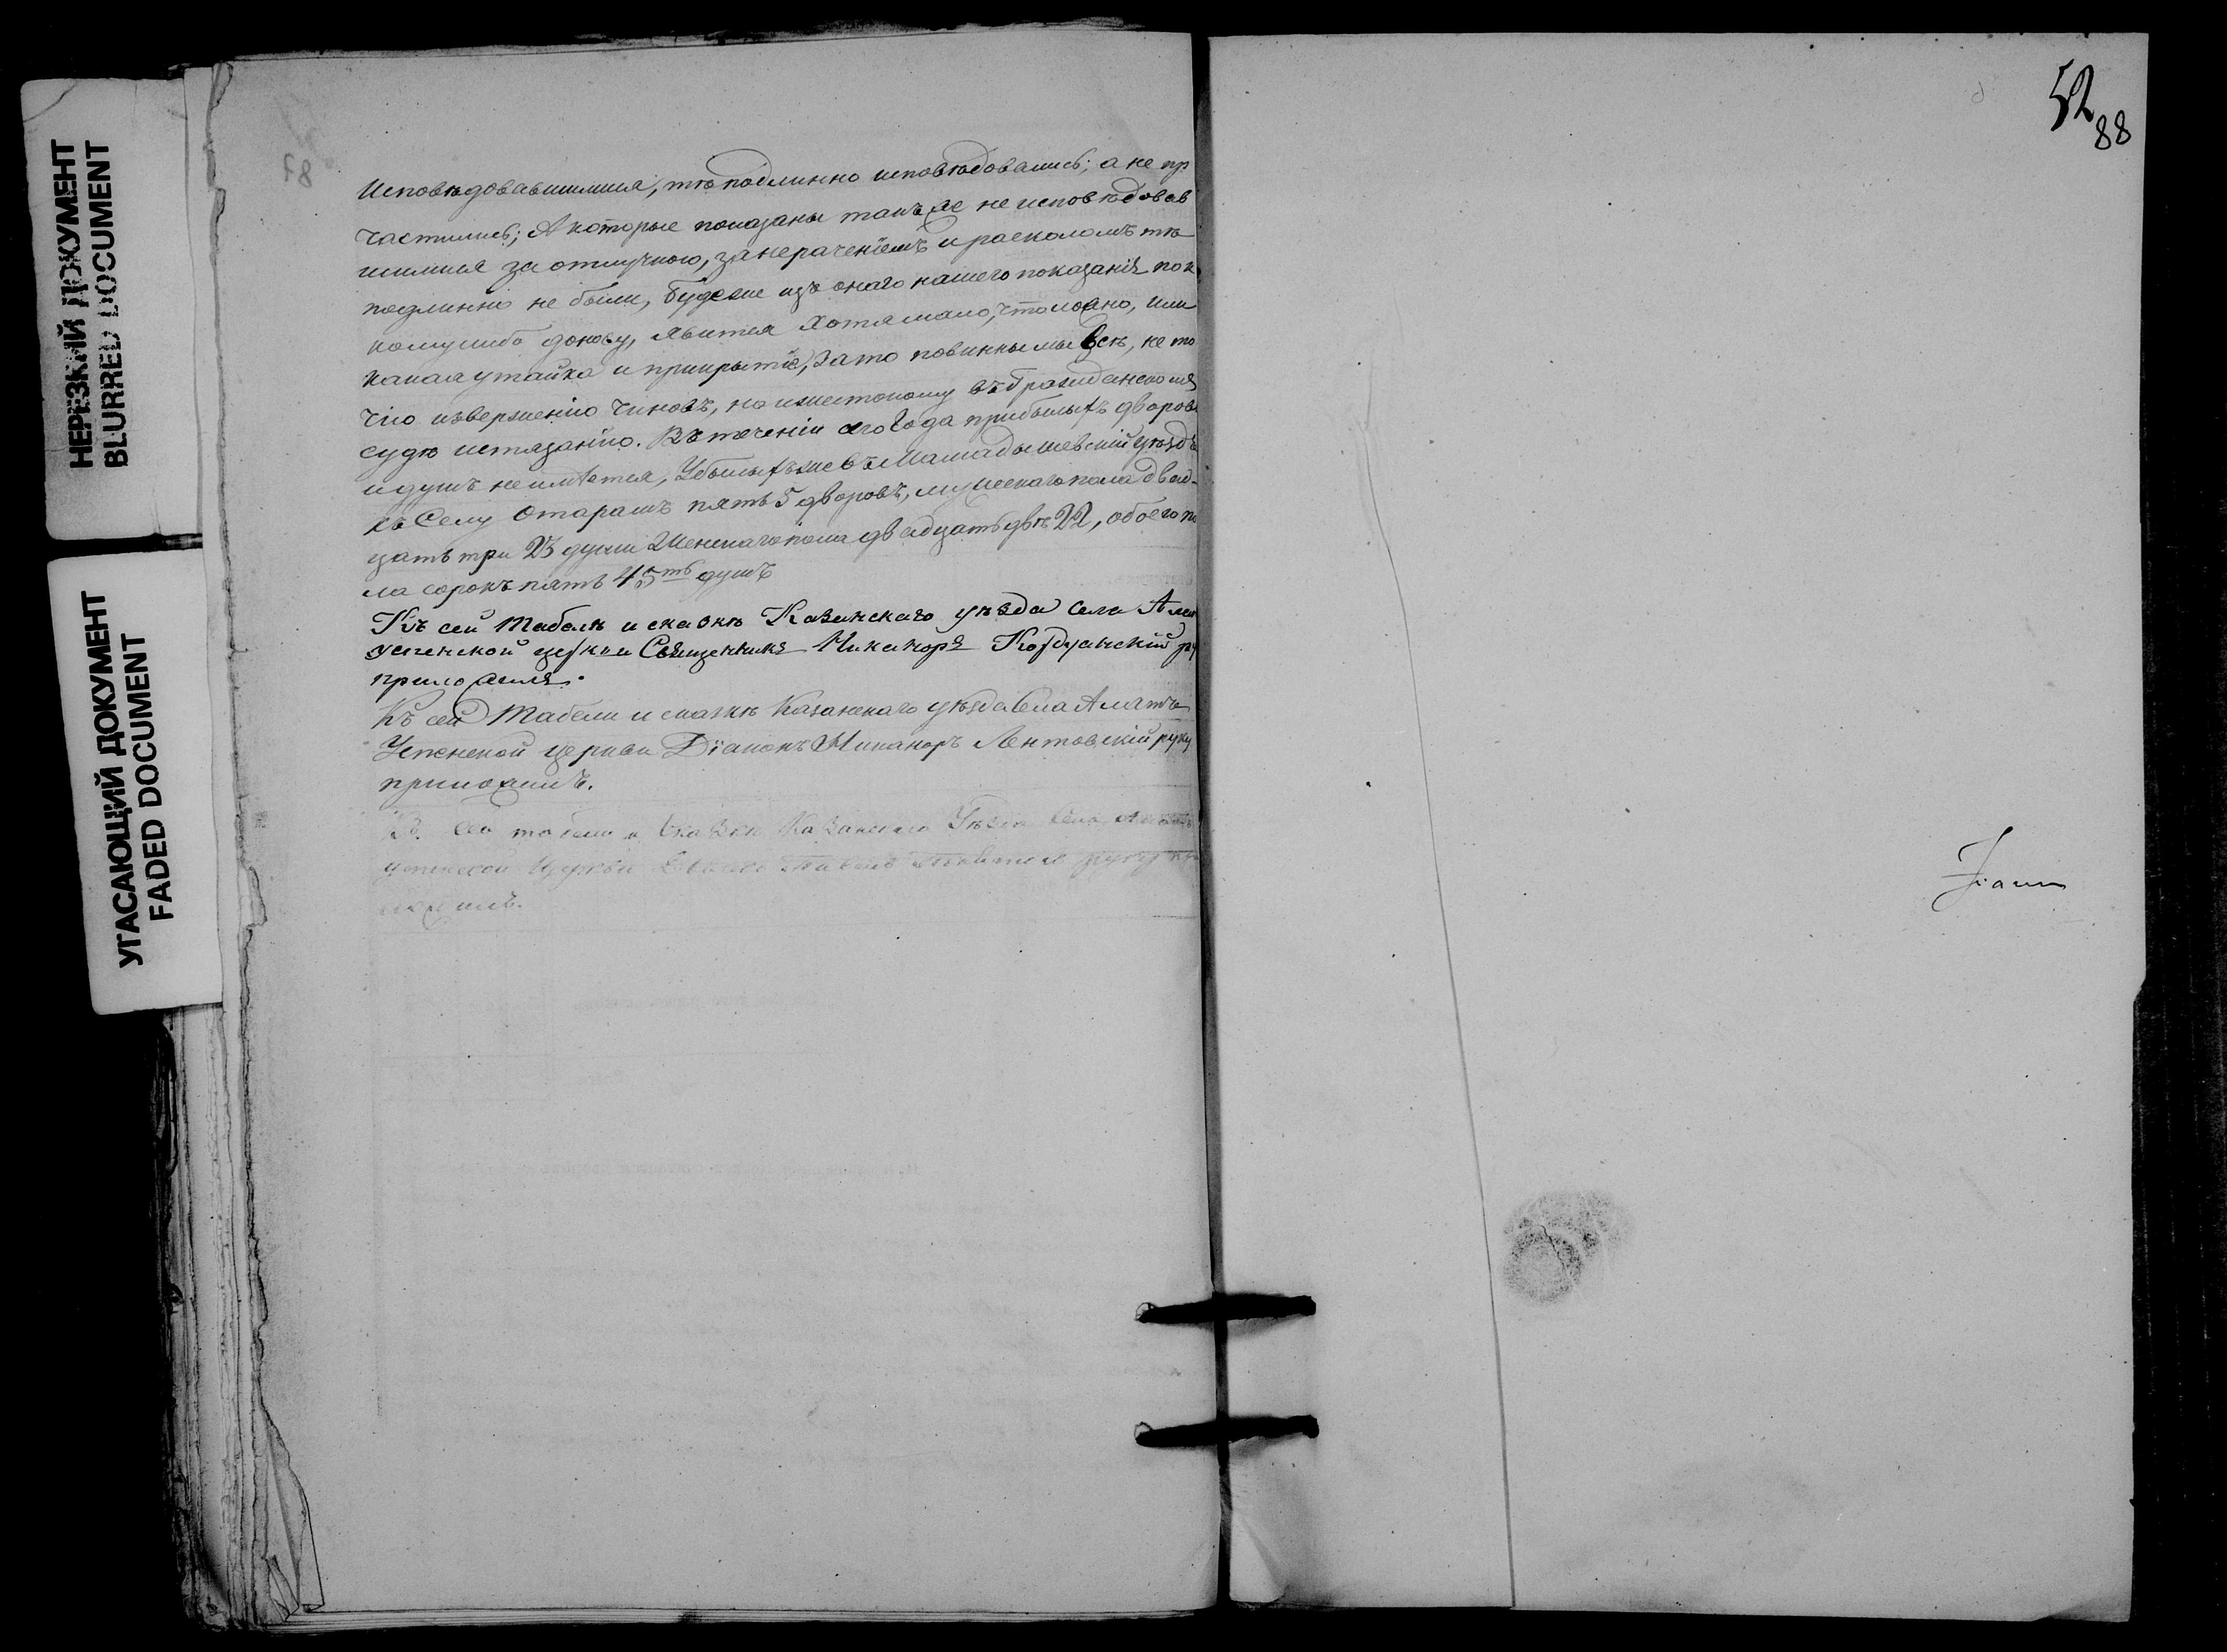 НЕРЕЗКИЙ ДОКУМЕНТ
BLURRED DOCUMENT
УГАСАЮЩИЙ ДОКУМЕНТ
FADED DOCUMENT
Исповѣдовавшимися, тѣ подлинно исповѣдовались; а не пр
частились; А которые показаны также не исповѣдовав
шимися за отлучкою, за нерачениемъ и расколомъ тѣ
подлинно не были, буде же изъ онаго нашего показанія по к
кому либо доносу, явится хотя мало, что ложно, или
какая утайка и прикрытіе, за то повинны мы всѣ, не то
чію изверженію чиновъ, но и жестокому въ гражданскомъ
судѣ истязанію. Въ теченіи сего Года прибылыхъ дворовъ
и душъ не имѣется, Убылыхъ же въ Мамадышевскій уѣздъ
къ Селу Отарамъ пять 5 дворовъ, мужескаго пола двад-
цать три 23 души Женскаго пола двадцать двѣ 22, обоего по
ла сорокъ пять 45ть душъ
Къ сей Табелѣ и сказкѣ Казанскаго уѣзда Села Алат
успенской церкви Священникъ Никаноръ ру
приложилъ.
Къ сей Табели и сказкѣ Казанскаго уѣзда Села Алатъ
Успенской церкви Діаконъ Никаноръ Лентовскій руку
приложилъ.
Къ сей табели и сказкѣ Казанскаго Уѣзда Села
успенской Церкви руку пр
ложилъ.
52
88
87